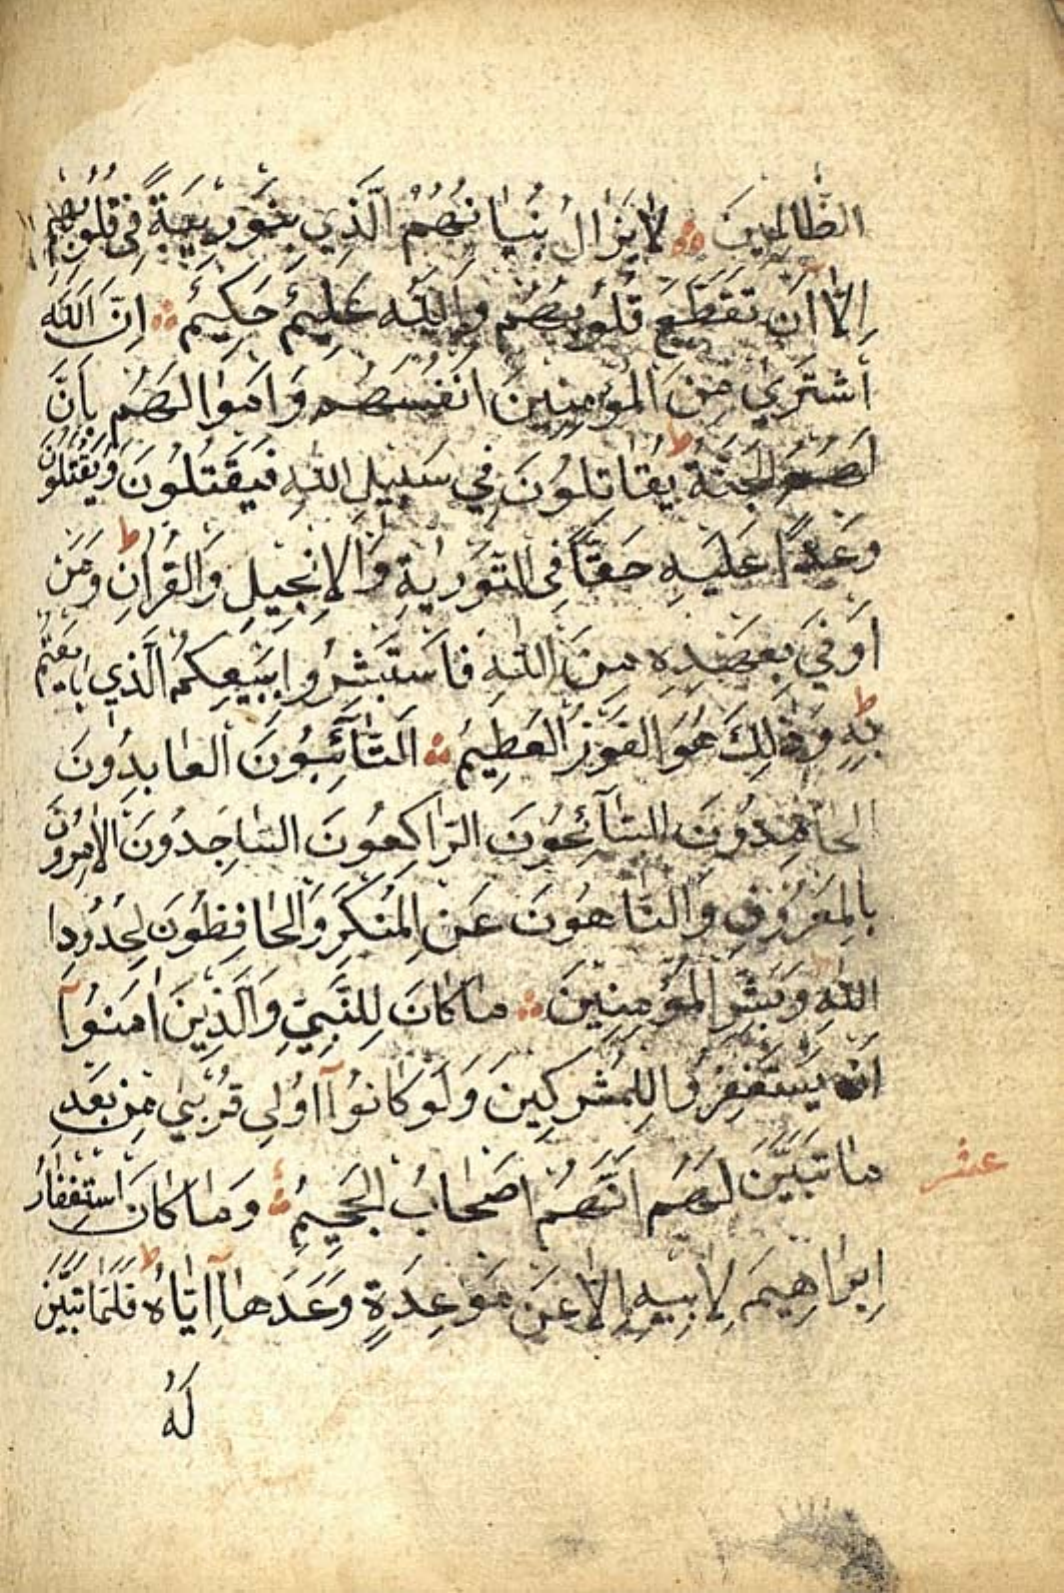 الظَّالِمِينَ لَا يَزَالُ بُنْيَانُهُمُ الَّذِي بَنَوْ رِيبَةً فِي قُلُوبِهِمْ
اِلَّا اَنْ تَقَطَّعَ قُلُوبُهُمْ وَاللّٰهُ عَلِيمٌ حَكِيمٌ اِنَّ اللّٰهَ
اشْتَرٰي مِنَ الْمُؤْمِنِينَ اَنْفُسَهُمْ وَاَمْوَالَهُمْ بِاَنَّ
لَهُمُ الْجَنَّةَ ط يُقَاتِلُونَ فِي سَبِيلِ اللّٰهِ فَيَقْتُلُونَ وَيُقْتَلُونَ
وَعْدًا عَلَيْهِ حَقًّا فِي التَّوْرٰيةِ وَالْاِنْجِيلِ وَالْقُرْاٰنِ ط وَمَنْ
اَوْفٰي بِعَهْدِهِ مِنَ اللّٰهِ فَاسْتَبْشِرُوا بِبَيْعِكُمُ الَّذِي بَايَعْتُمْ
بِهِ ط وَذٰلِكَ هُوَ الْفَوْزُ الْعَظِيمُ اَلتَّآئِبُونَ الْعَابِدُونَ
الْحَامِدُونَ السَّآئِحُونَ الرَّاكِعُونَ السَّاجِدُونَ الْاٰمِرُونَ
بِالْمَعْرُوفِ وَالنَّاهُونَ عَنِ الْمُنْكَرِ وَالْحَافِظُونَ لِحُدُودِ ا
اللّٰهِ وَبَشِّرِ الْمُؤْمِنِينَ مَا كَانَ لِلنَّبِيِّ وَالَّذِينَ اٰمَنُوآ
اَنْ يَسْتَغْفِرُوا لِلْمُشْرِكِينَ وَلَوْ كَانُوآ اُولِي قُرْبٰي مِنْ بَعْدِ
مَا تَبَيَّنَ لَهُمْ اَنَّهُمْ اَصْحَابُ الْجَحِيمِ وَمَا كَانَ اسْتِغْفَارُ
عشر
اِبْرَاهِيمَ لِاَبِيهِ اِلَّا عَنْ مَوْعِدَةٍ وَعَدَهَآ اِيَّاهُ ط فَلَمَّا تَبَيَّنَ
لَهُ